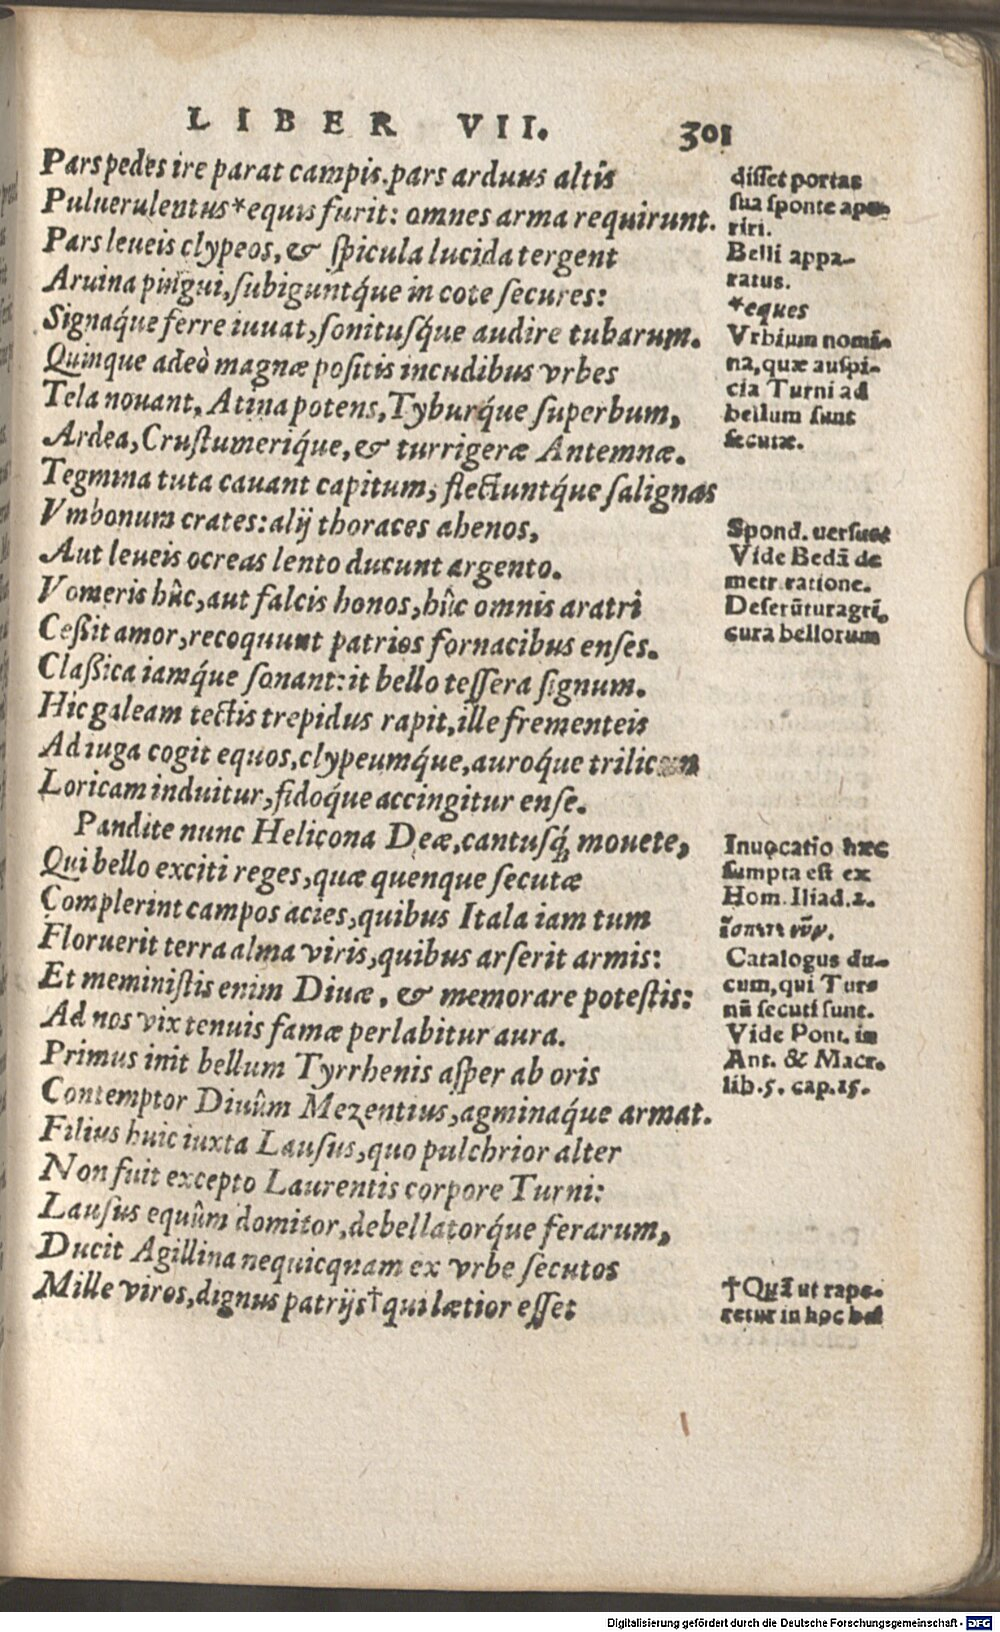 LIBER VII. 301
Pars pedes ire parat campis. pars arduus altis
Puluerulentus*equis furit: omnes arma requirunt.
Pars leueis clypeos, & ſpicula lucida tergent
Aruina pingui, ſubiguntq́ue in cote ſecures:
Signaq́ue ferre iuuat, ſonituſq́ue audire tubarum.
Quinque adeò magnæ poſitis incudibus vrbes
Tela nouant, Atina potens, Tyburq́ue ſuperbum,
Ardea, Cruſtumeriq́ue, & turrigeræ Antemnæ.
Tegmina tuta cauant capitum, flectuntq́ue ſalignas
Vmbonum crates: alij thoraces ahenos,
Aut leueis ocreas lento ducunt argento.
Vomeris hûc, aut falcis honos, hûc omnis aratri
Ceßit amor, recoquunt patrios fornacibus enſes.
Claßica iamq́ue ſonant: it bello teſſera ſignum.
Hic galeam tectis trepidus rapit, ille frementeis
Ad iuga cogit equos, clypeumq́ue, auroq́ue trilicem
Loricam induitur, fidoq́ue accingitur enſe.
Pandite nunc Helicona Deæ, cantuſq́; mouete,
Qui bello exciti reges, quæ quenque ſecutæ
Complerint campos acies, quibus Itala iam tum
Floruerit terra alma viris, quibus arſerit armis:
Et meminiſtis enim Diuæ, & memorare poteſtis:
Ad nos vix tenuis famæ perlabitur aura.
Primus init bellum Tyrrhenis aſper ab oris
Contemptor Diuûm Mezentius, agminaq́ue armat.
Filius huic iuxta Lauſus, quo pulchrior alter
Non fuit excepto Laurentis corpore Turni:
Lauſus equûm domitor, debellatorq́ue ferarum,
Ducit Agillina nequicqnam ex vrbe ſecutos
Mille viros, dignus patrijs†qui lætior eſſet
diſſet portas
ſua ſponte ape-
riri.
Belli appa-
ratus.
*eques
Vrbium nomi-
na, quæ auſpi-
cia Turni ad
bellum ſunt
ſecutæ.
Spond. uerſus
Vide Bedā de
metr. ratione.
Deſerūtur agri,
cura bellorum
Inuocatio hæc
ſumpta eſt ex
Hom. Iliad. 2.
Catalogus du-
cum, qui Tur-
nū ſecuti ſunt.
Vide Pont. in
Ant. & Macr.
lib. 5. cap. 15.
†Quā ut rape-
retur in hoc bel
Digitalisierung gefördert durch die Deutsche Forschungsgemeinschaft - DFG